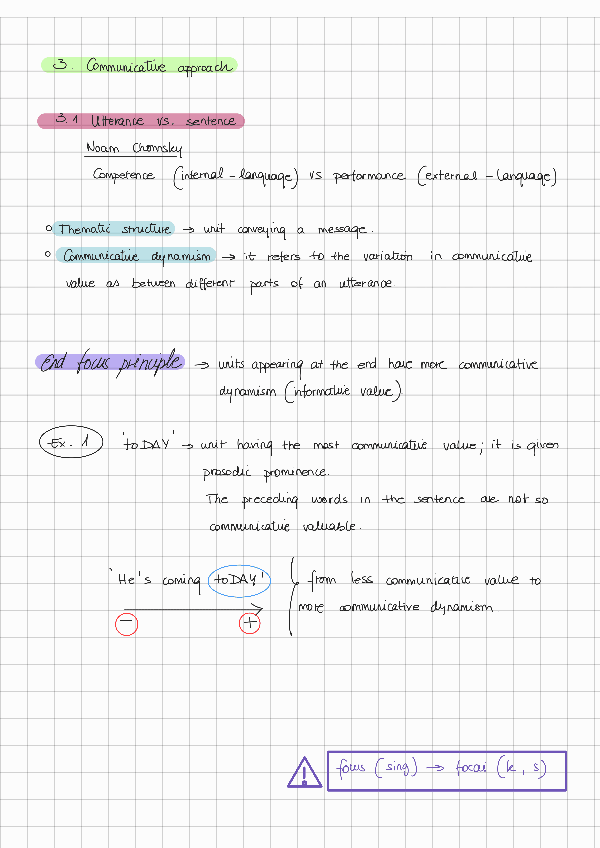 3. Communicative approach
3.1 Utterance vs. sentence
Noam Chomsky
Competence (internal-language) vs performance (external-language)
Thematic structure → unit conveying a message.
Communicative dynamism → it refers to the variation in communicative
value as between different parts of an utterance.
End focus principle → units appearing at the end have more communicative
dynamism (informative value)
Ex. 1 'toDAY' → unit having the most communicative value; it is given
prosodic prominence.
The preceding words in the sentence are not so
communicative valuable.
'He's coming toDAY' from less communicative value to
more communicative dynamism
− +
! focus (sing) → focai (k, s)